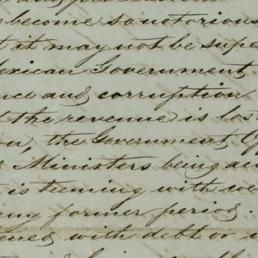 become so notorious
it may not be supe
exican Government
nce and corruption
the revenue is los
on, the Government
Ministers being aw
is teeming with we
ing former period.
ened with debt or